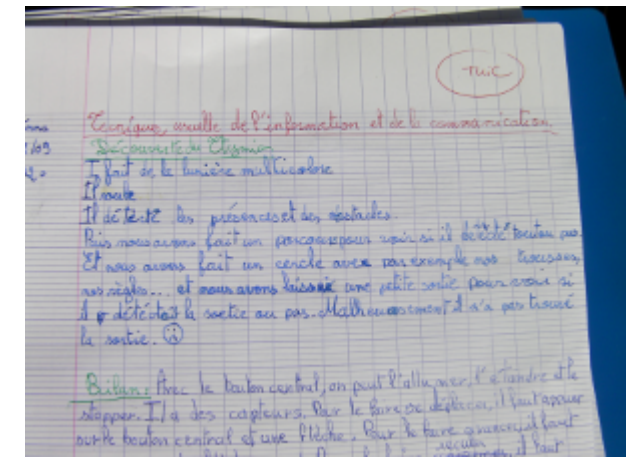 TUIC
Tecnique usuelle de l'information et de la communication.
Découverte du Thymio
I fait de la lumière multicolore
Il roule
Il détecte les présences et des obstacles.
Puis nous avons fait un parcours pour voir si il détécté tout ou pas.
Et nous avons fait un cercle avec par exemple nos trousses,
nos règles... et nous avons laissé une petite sortie pour voir si
il détéctait la sortie ou pas. Malheureusement il n'a pas trouvé
la sortie.
Bilan: Avec le bouton central, on peut l'allumer, l'étandre et le
stopper. Il a des capteurs. Pour le faire se déplacer, il faut appuer
sur le bouton central et une flèche. Pour le faire avancer, il faut
reculer il faut